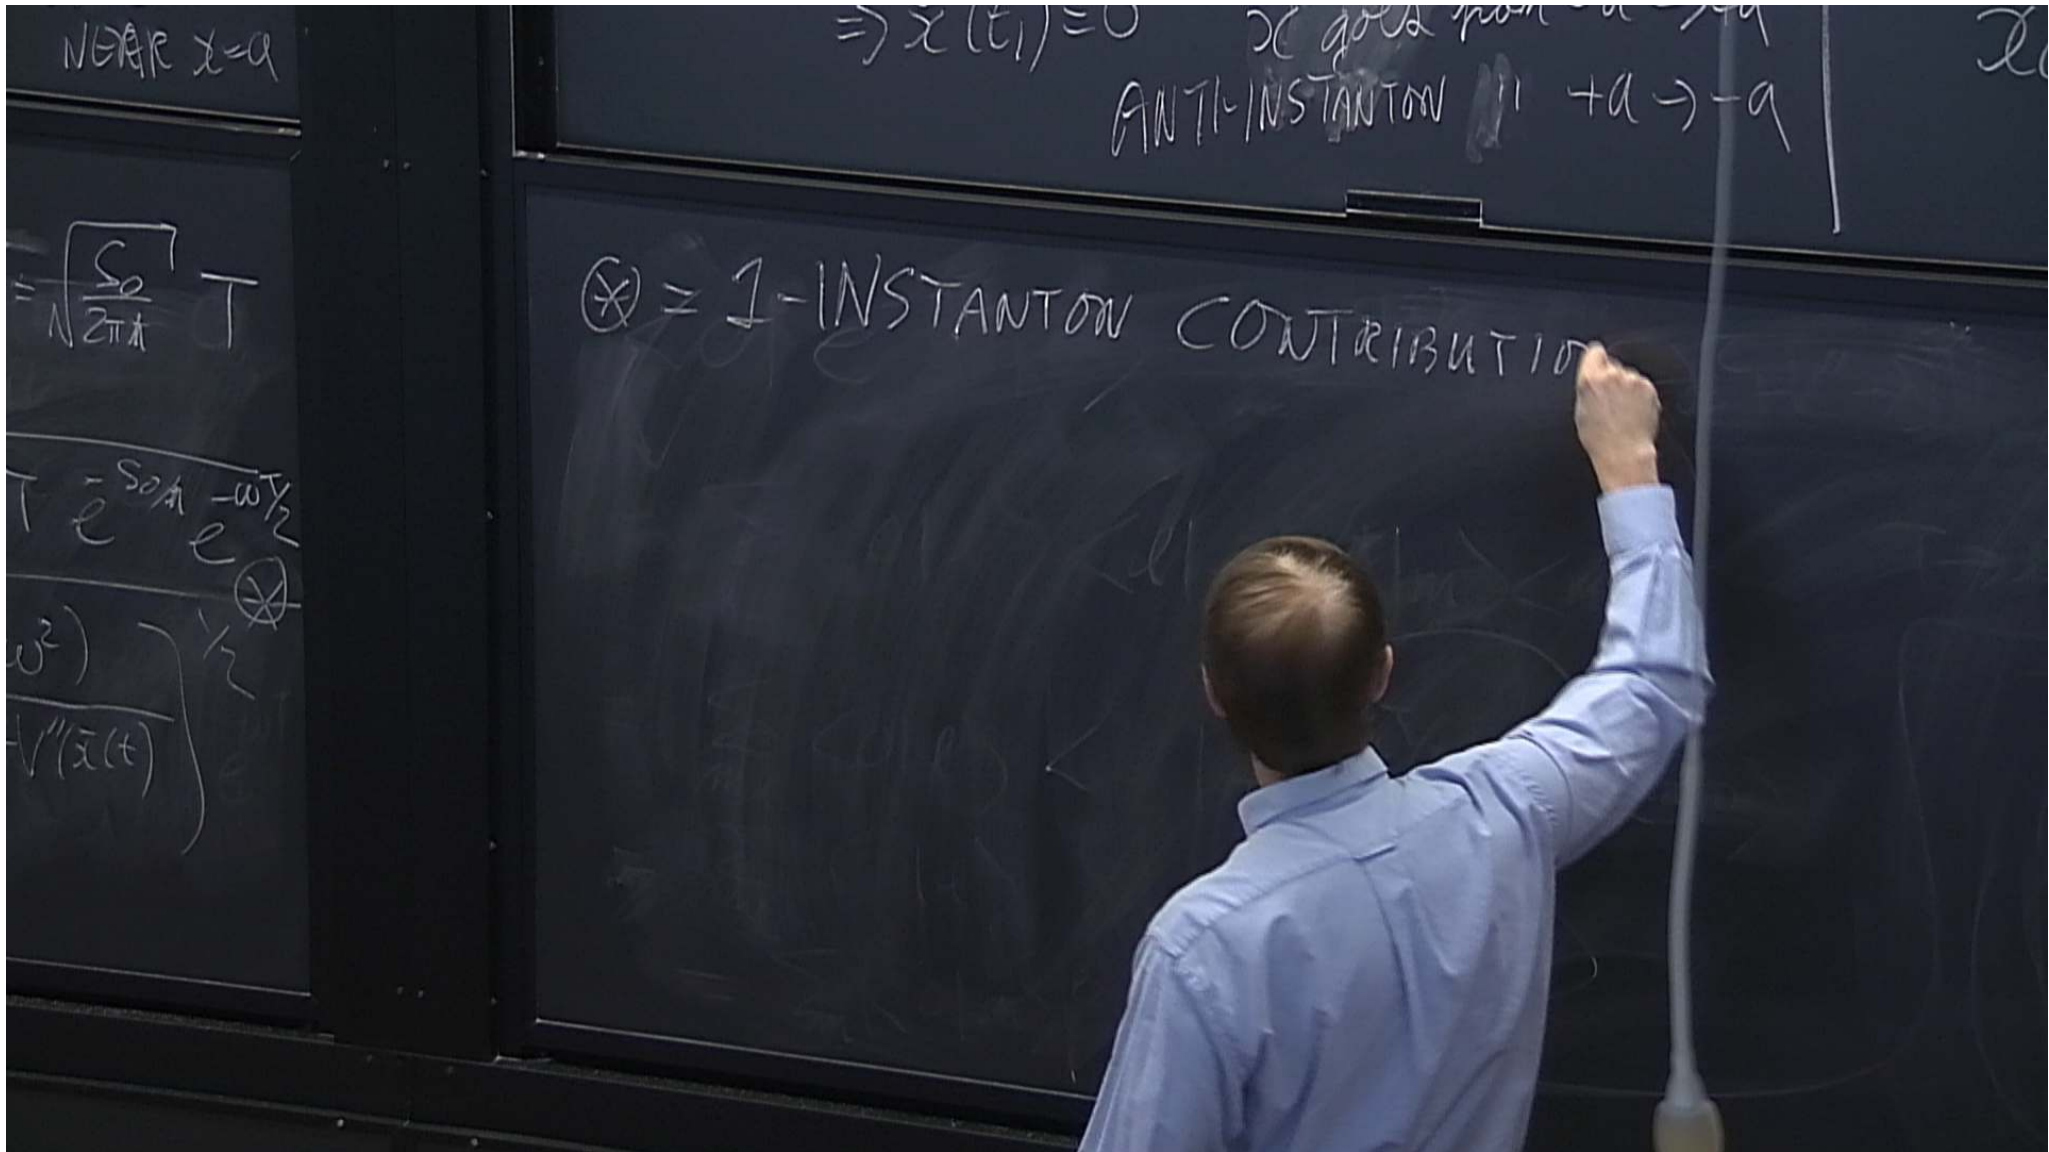 NEAR x=a
= √(S₀/2πħ) T
T e^{-S₀/ħ} e^{-ωT/2}
⊛
ω²) ^{1/2}
V''(x̄(t)
⇒ x̄(t₁)=0 x goes from -a → +a
ANTI-INSTANTON " +a → -a
⊛ = 1-INSTANTON CONTRIBUTIO